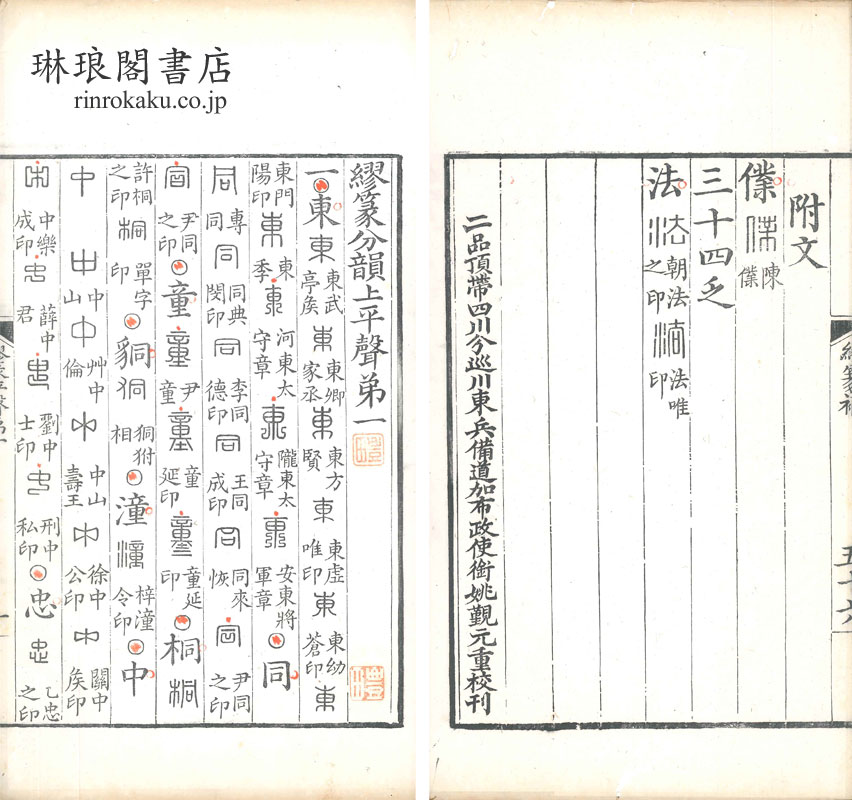 琳琅閣書店
rinrokaku.co.jp
繆篆分韻上平聲弟一
一東東東武亭矦東東卿家丞東東方賢東東虛唯印東東幼蒼印東
東門陽印東東季東河東太守章東隴東太守章東安東將軍章同
同專同同同典閔印同李同德印同王同成印同同來恢同尹同之印
同尹同之印童童尹童童童延印童童延印桐桐
許桐之印桐單字印相潼潼梓潼令印中
中中中山中艸中倫中中山壽王中徐中公印中關中矦印
中中樂成印中薛中君中劉中士印中刑中私印忠忠乙忠之印
附文
三十四乏
法法朝法之印法法唯印
二品頂帶四川分巡川東兵備道加布政使銜姚覲元重校刊
五十六